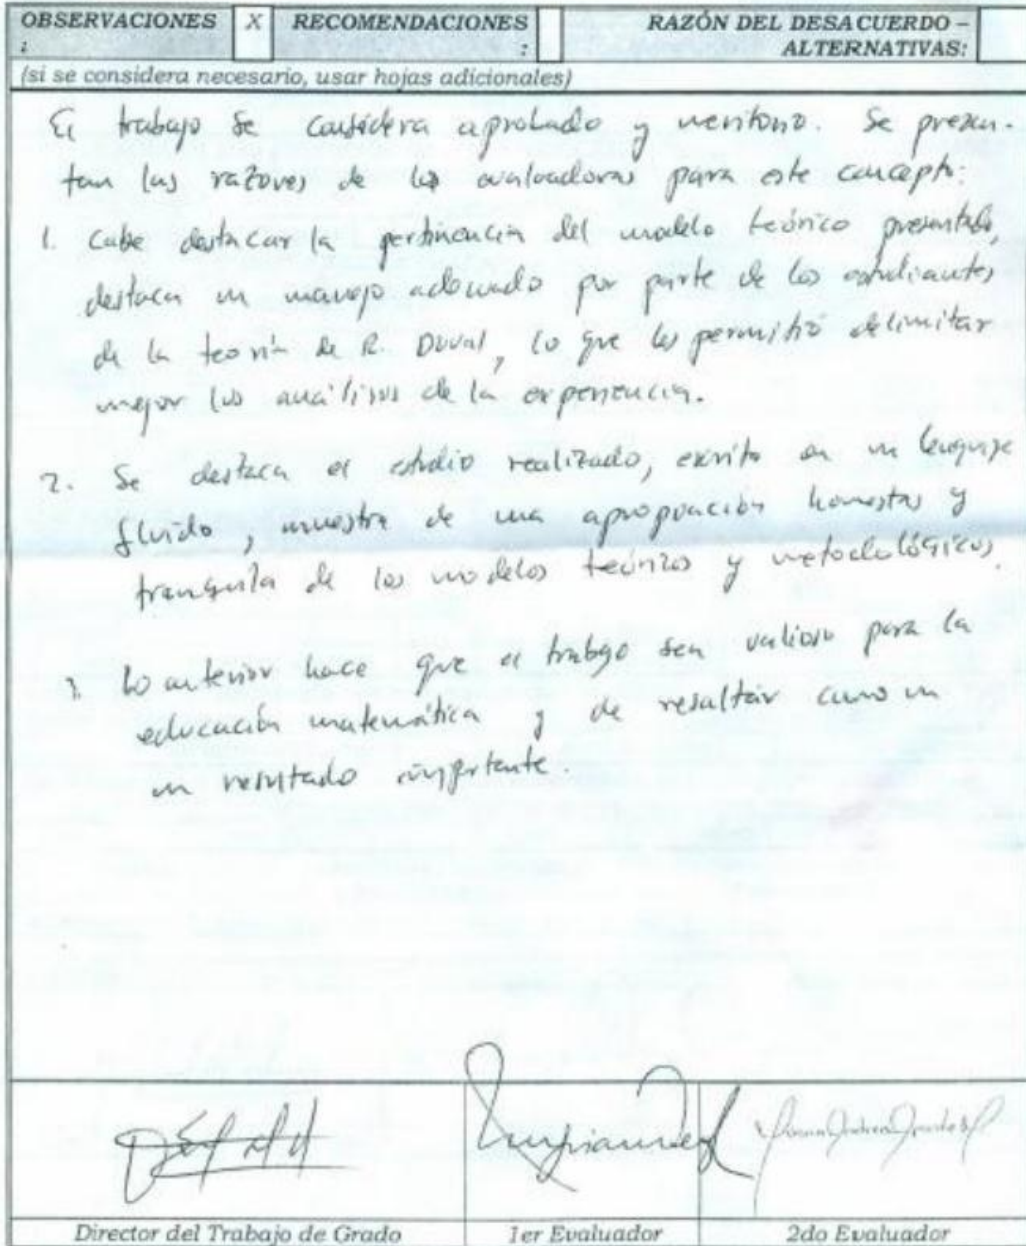 OBSERVACIONES : X RECOMENDACIONES : RAZÓN DEL DESACUERDO – ALTERNATIVAS:
(si se considera necesario, usar hojas adicionales)
El trabajo se considera aprobado y meritorio. Se presen-
tan las razones de los evaluadores para este concepto:
1. Cabe destacar la pertinencia del modelo teórico presentado,
destaca un manejo adecuado por parte de los estudiantes
de la teoría de R. Duval, lo que les permitió delimitar
mejor los análisis de la experiencia.
2. Se destaca el estudio realizado, escrito en un lenguaje
fluido, muestra de una apropiación honesta y
tranquila de los modelos teóricos y metodológicos.
3. Lo anterior hace que el trabajo sea valioso para la
educación matemática y de resaltar como un
un resultado importante.
Director del Trabajo de Grado 1er Evaluador 2do Evaluador